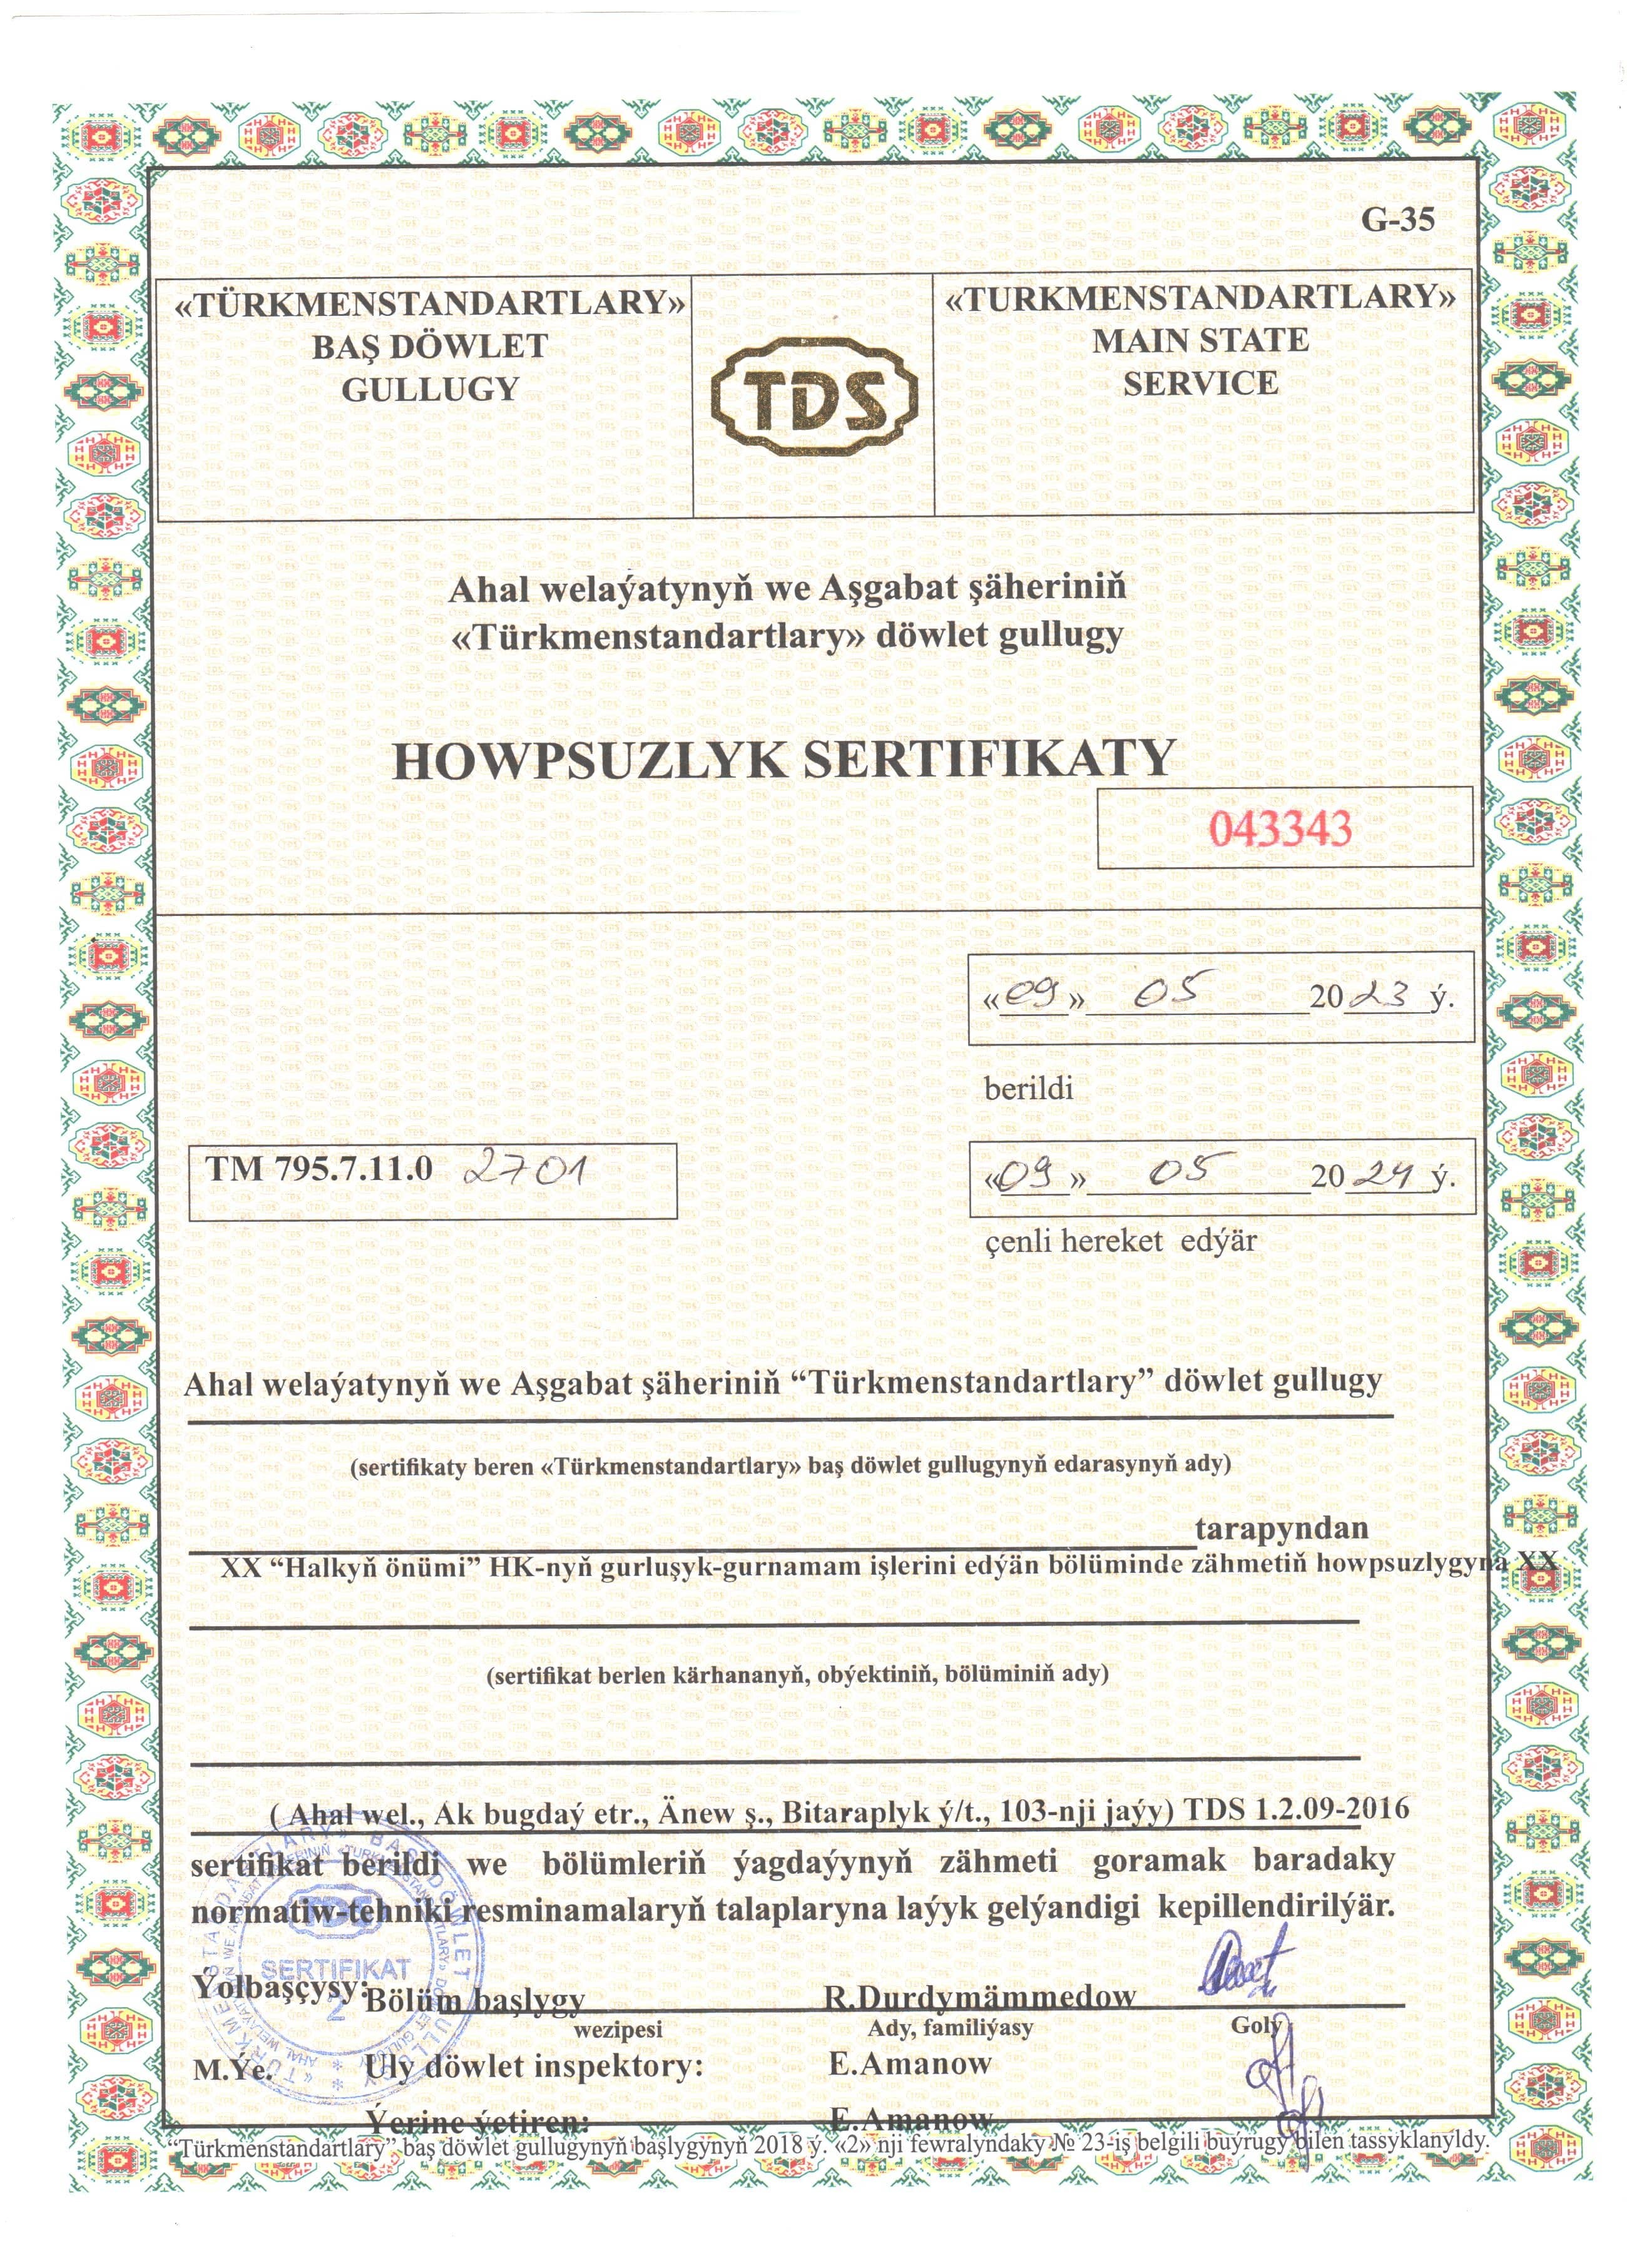 G-35
«TÜRKMENSTANDARTLARY»
BAŞ DÖWLET
GULLUGY
TDS
«TURKMENSTANDARTLARY»
MAIN STATE
SERVICE
Ahal welaýatynyň we Aşgabat şäheriniň
«Türkmenstandartlary» döwlet gullugy
HOWPSUZLYK SERTIFIKATY
043343
«09» 05 2023 ý.
berildi
TM 795.7.11.0 2701
«09» 05 2024 ý.
çenli hereket edýär
Ahal welaýatynyň we Aşgabat şäheriniň “Türkmenstandartlary” döwlet gullugy
(sertifikaty beren «Türkmenstandartlary» baş döwlet gullugynyň edarasynyň ady)
tarapyndan
XX “Halkyň önümi” HK-nyň gurluşyk-gurnamam işlerini edýän bölüminde zähmetiň howpsuzlygyna XX
(sertifikat berlen kärhananyň, obýektiniň, bölüminiň ady)
( Ahal wel., Ak bugdaý etr., Änew ş., Bitaraplyk ý/t., 103-nji jaýy) TDS 1.2.09-2016
sertifikat berildi we bölümleriň ýagdaýynyň zähmeti goramak baradaky
normatiw-tehniki resminamalaryň talaplaryna laýyk gelýandigi kepillendirilýär.
TDS
SERTIFIKAT
2
Ýolbaşçysy: Bölüm başlygy R.Durdymämmedow
wezipesi Ady, familiýasy Goly
M.Ýe. Uly döwlet inspektory: E.Amanow
Ýerine ýetiren: E.Amanow
“Türkmenstandartlary” baş döwlet gullugynyň başlygynyň 2018 ý. «2» nji fewralyndaky № 23-iş belgili buýrugy bilen tassyklanyldy.